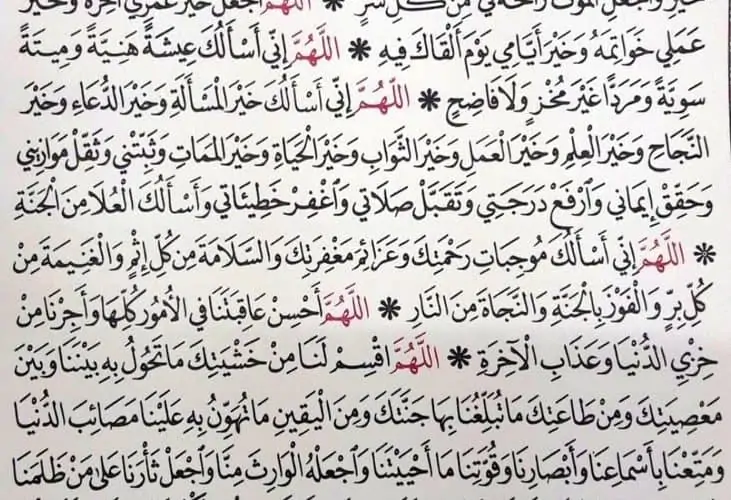 خَيْرٍ وَاجْعَلِ الْمَوْتَ رَاحَةً لِي مِنْ كُلِّ شَرٍّ ❋ اللَّهُمَّ اجْعَلْ خَيْرَ عُمُرِي آخِرَهُ وَخَيْرَ
عَمَلِي خَوَاتِمَهُ وَخَيْرَ أَيَّامِي يَوْمَ أَلْقَاكَ فِيهِ ❋ اللَّهُمَّ إِنِّي أَسْأَلُكَ عِيشَةً هَنِيَّةً وَمِيتَةً
سَوِيَّةً وَمَرَدًّا غَيْرَ مُخْزٍ وَلَا فَاضِحٍ ❋ اللَّهُمَّ إِنِّي أَسْأَلُكَ خَيْرَ الْمَسْأَلَةِ وَخَيْرَ الدُّعَاءِ وَخَيْرَ
النَّجَاحِ وَخَيْرَ الْعِلْمِ وَخَيْرَ الْعَمَلِ وَخَيْرَ الثَّوَابِ وَخَيْرَ الْحَيَاةِ وَخَيْرَ الْمَمَاتِ وَثَبِّتْنِي وَثَقِّلْ مَوَازِينِي
وَحَقِّقْ إِيمَانِي وَارْفَعْ دَرَجَتِي وَتَقَبَّلْ صَلَاتِي وَاغْفِرْ خَطِيئَاتِي وَأَسْأَلُكَ الْعُلَا مِنَ الْجَنَّةِ
❋ اللَّهُمَّ إِنِّي أَسْأَلُكَ مُوجِبَاتِ رَحْمَتِكَ وَعَزَائِمَ مَغْفِرَتِكَ وَالسَّلَامَةَ مِنْ كُلِّ إِثْمٍ وَالْغَنِيمَةَ مِنْ
كُلِّ بِرٍّ وَالْفَوْزَ بِالْجَنَّةِ وَالنَّجَاةَ مِنَ النَّارِ ❋ اللَّهُمَّ أَحْسِنْ عَاقِبَتَنَا فِي الْأُمُورِ كُلِّهَا وَأَجِرْنَا مِنْ
خِزْيِ الدُّنْيَا وَعَذَابِ الْآخِرَةِ ❋ اللَّهُمَّ اقْسِمْ لَنَا مِنْ خَشْيَتِكَ مَا تَحُولُ بِهِ بَيْنَنَا وَبَيْنَ
مَعْصِيَتِكَ وَمِنْ طَاعَتِكَ مَا تُبَلِّغُنَا بِهَا جَنَّتَكَ وَمِنَ الْيَقِينِ مَا تُهَوِّنُ بِهِ عَلَيْنَا مَصَائِبَ الدُّنْيَا
وَمَتِّعْنَا بِأَسْمَاعِنَا وَأَبْصَارِنَا وَقُوَّتِنَا مَا أَحْيَيْتَنَا وَاجْعَلْهُ الْوَارِثَ مِنَّا وَاجْعَلْ ثَأْرَنَا عَلَى مَنْ ظَلَمَنَا